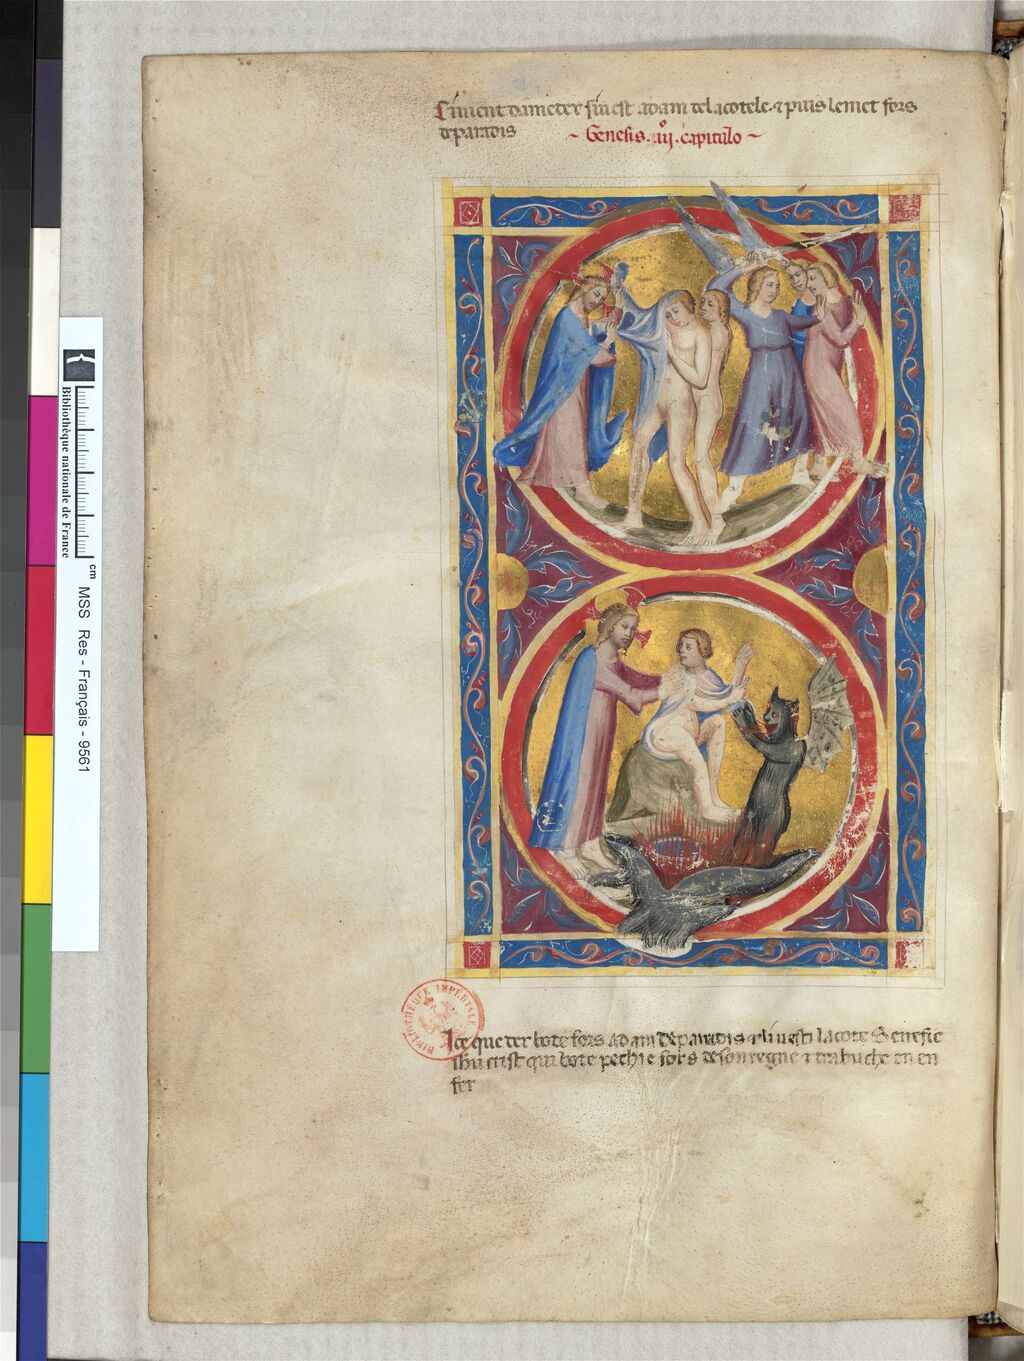 Ci vient damedex si vest adam de la cotele. et puis le met fors
de paradis
~ Genesis .iijº. capitulo ~
Ice que dex bote fors adam de paradis et li vesti la cote Senefie
ihu crist qui bote pechie fors de son regne et trabuche en en
fer
BIBLIOTHÈQUE IMPÉRIALE
Bibliothèque nationale de France
cm
MSS Res - Français - 9561